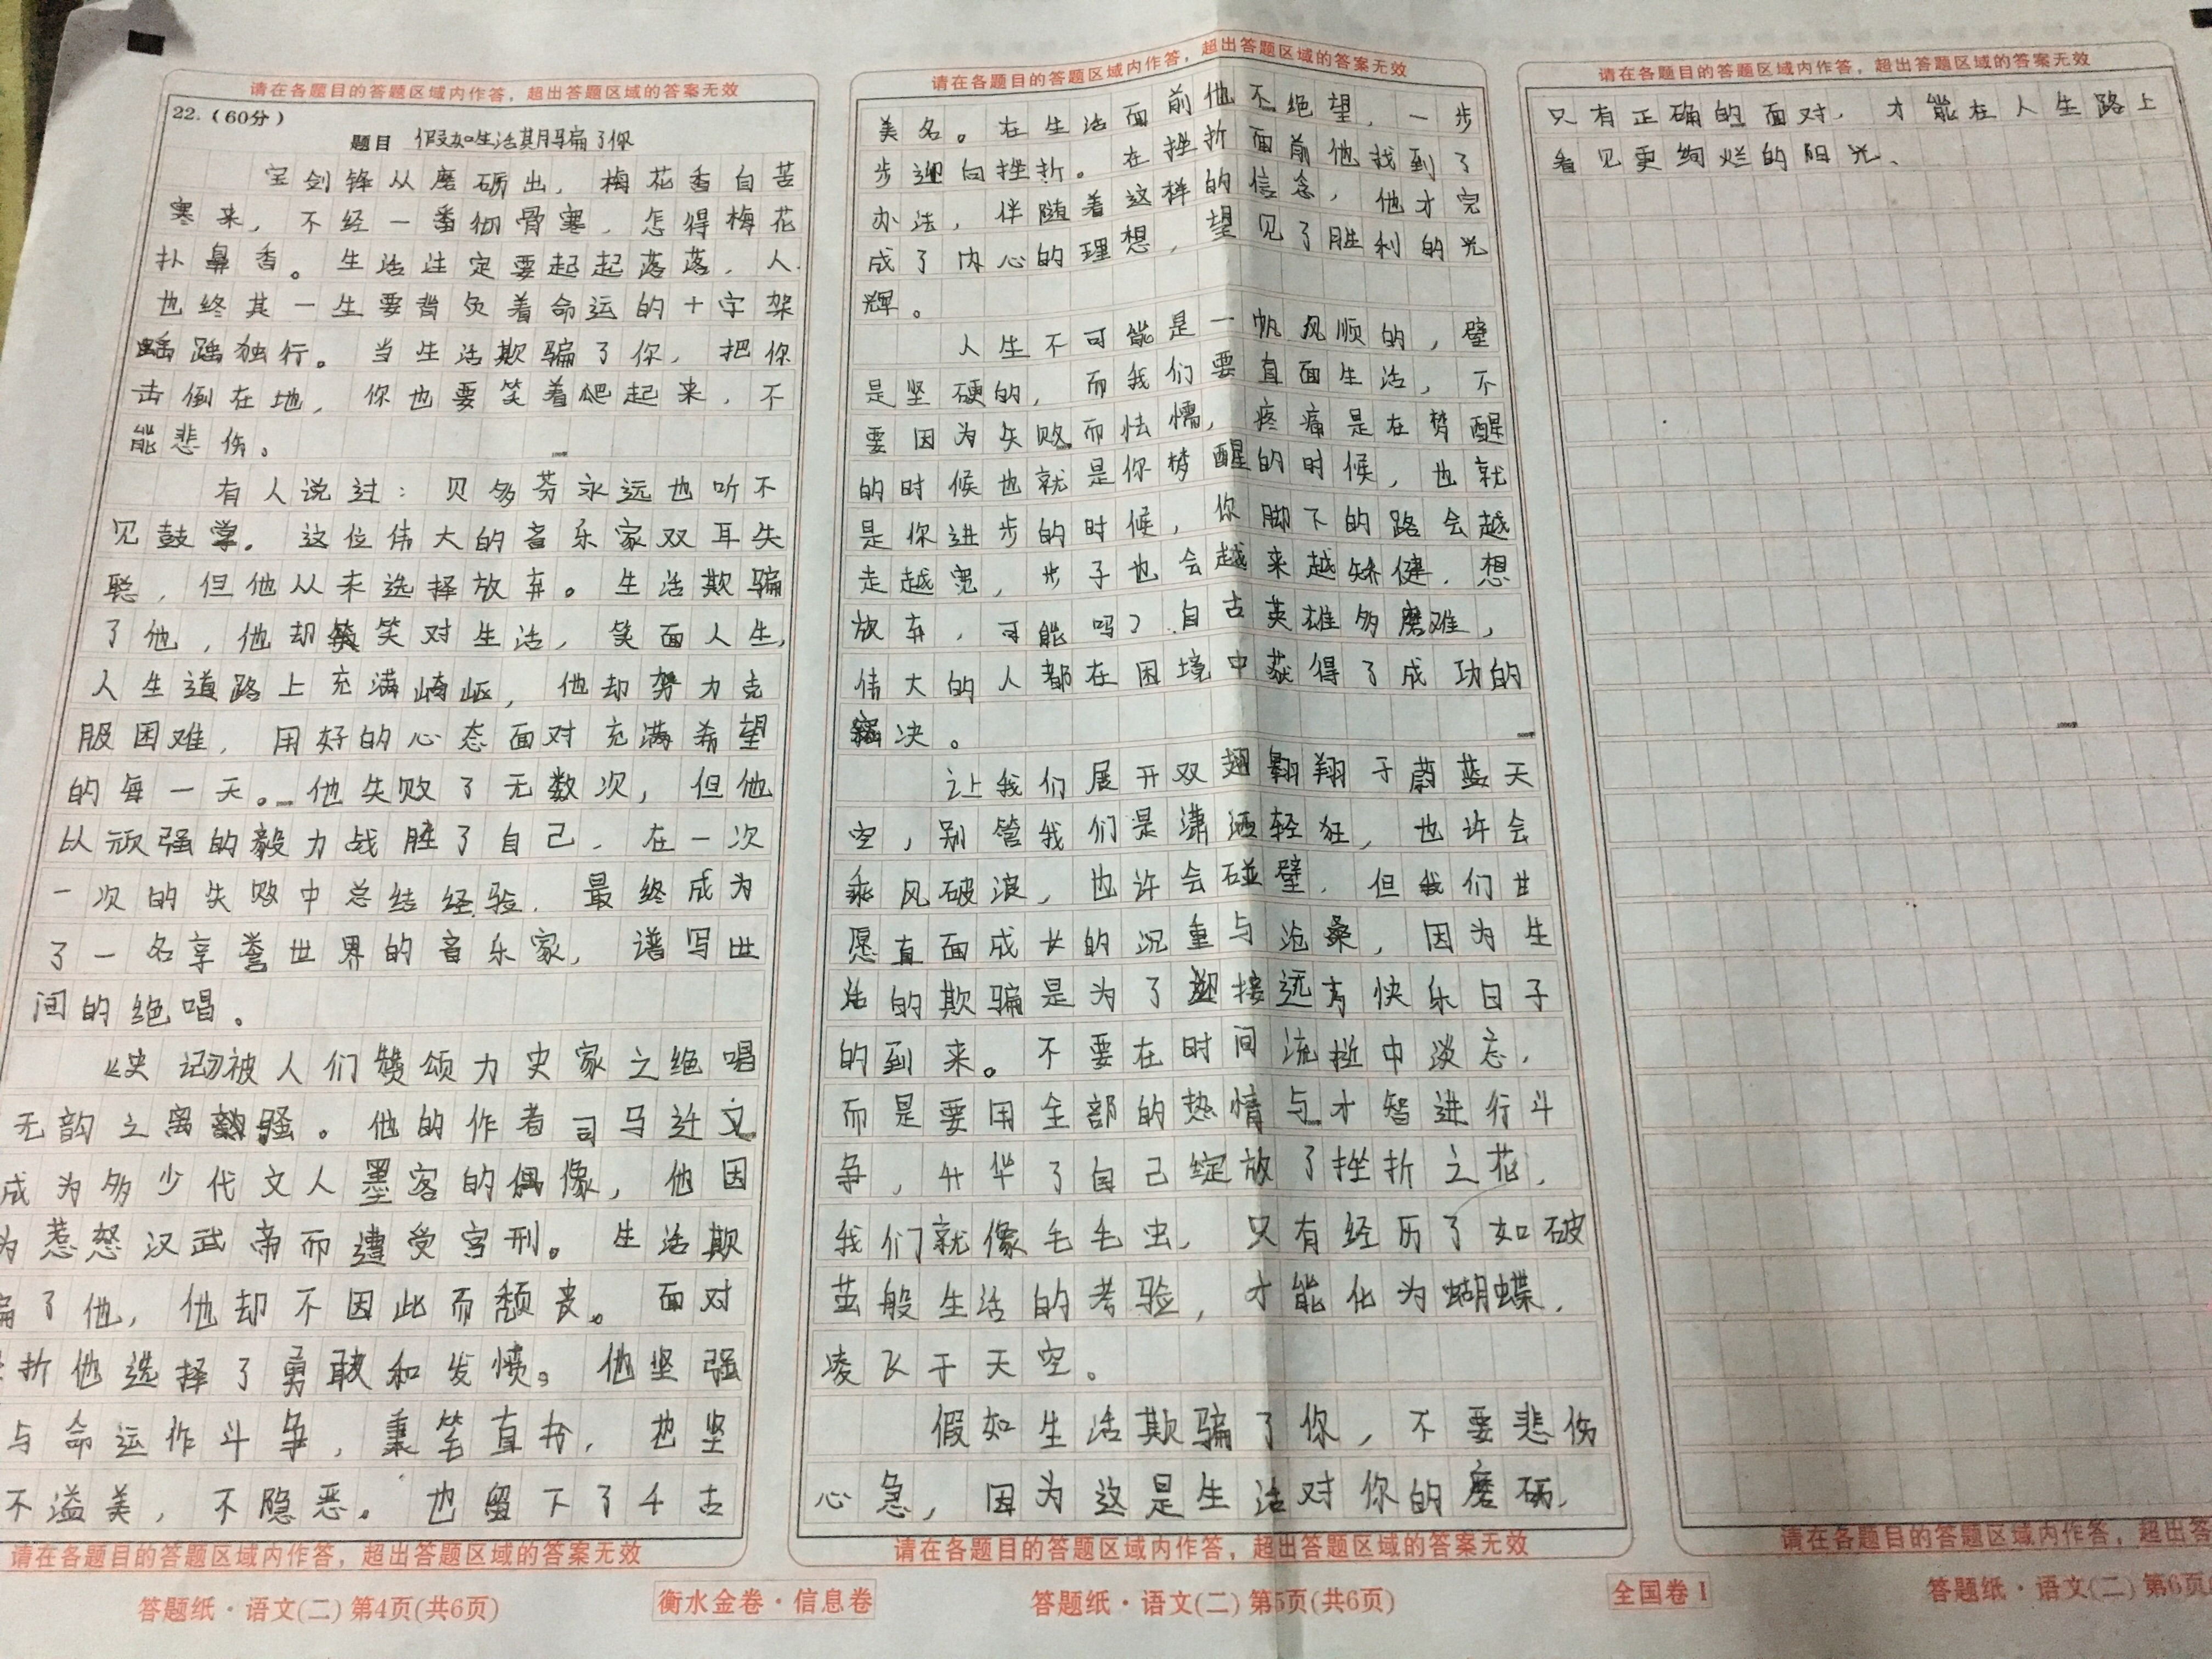 请在各题目的答题区域内作答，超出答题区域的答案无效
22.（60分）
题目 假如生活欺骗了你
宝剑锋从磨砺出，梅花香自苦
寒来，不经一番彻骨寒，怎得梅花
扑鼻香。生活注定要起起落落，人
也终其一生要背负着命运的十字架
踽踽独行。当生活欺骗了你，把你
击倒在地，你也要笑着爬起来，不
能悲伤。
有人说过：贝多芬永远也听不
见鼓掌。这位伟大的音乐家双耳失
聪，但他从未选择放弃。生活欺骗
了他，他却笑对生活，笑面人生，
人生道路上充满崎岖，他却努力克
服困难，用好的心态面对充满希望
的每一天。他失败了无数次，但他
以顽强的毅力战胜了自己，在一次
一次的失败中总结经验，最终成为
了一名享誉世界的音乐家，谱写世
间的绝唱。
《史记》被人们赞颂为史家之绝唱
无韵之离骚。他的作者司马迁文
成为多少代文人墨客的偶像，他因
为惹怒汉武帝而遭受宫刑。生活欺
骗了他，他却不因此而颓丧。面对
折他选择了勇敢和发愤。他坚强
与命运作斗争，秉笔直书，也坚
不溢美，不隐恶。也留下了千古
请在各题目的答题区域内作答，超出答题区域的答案无效
答题纸·语文(二) 第4页(共6页)
衡水金卷·信息卷
请在各题目的答题区域内作答，超出答题区域的答案无效
美名。在生活面前他不绝望，一步
步迎向挫折。在挫折面前他找到了
办法，伴随着这样的信念，他才完
成了内心的理想，望见了胜利的光
辉。
人生不可能是一帆风顺的，壁
是坚硬的，而我们要直面生活，不
要因为失败而怯懦，疼痛是在梦醒
的时候也就是你梦醒的时候，也就
是你进步的时候，你脚下的路会越
走越宽，步子也会越来越矫健，想
放弃，可能吗？自古英雄多磨难，
伟大的人都在困境中获得了成功的
决。
让我们展开双翅翱翔于蔚蓝天
空，别管我们是潇洒轻狂，也许会
乘风破浪，也许会碰壁，但我们甘
愿直面成长的沉重与沧桑，因为生
活的欺骗是为了迎接远方快乐日子
的到来。不要在时间流逝中淡忘，
而是要用全部的热情与才智进行斗
争，升华了自己绽放了挫折之花，
我们就像毛毛虫，只有经历了如破
茧般生活的考验，才能化为蝴蝶，
凌飞于天空。
假如生活欺骗了你，不要悲伤
心急，因为这是生活对你的磨砺，
请在各题目的答题区域内作答，超出答题区域的答案无效
答题纸·语文(二) 第5页(共6页)
全国卷Ⅰ
请在各题目的答题区域内作答，超出答题区域的答案无效
只有正确的面对，才能在人生路上
看见更绚烂的阳光、
请在各题目的答题区域内作答，超出答
答题纸·语文(二) 第6页